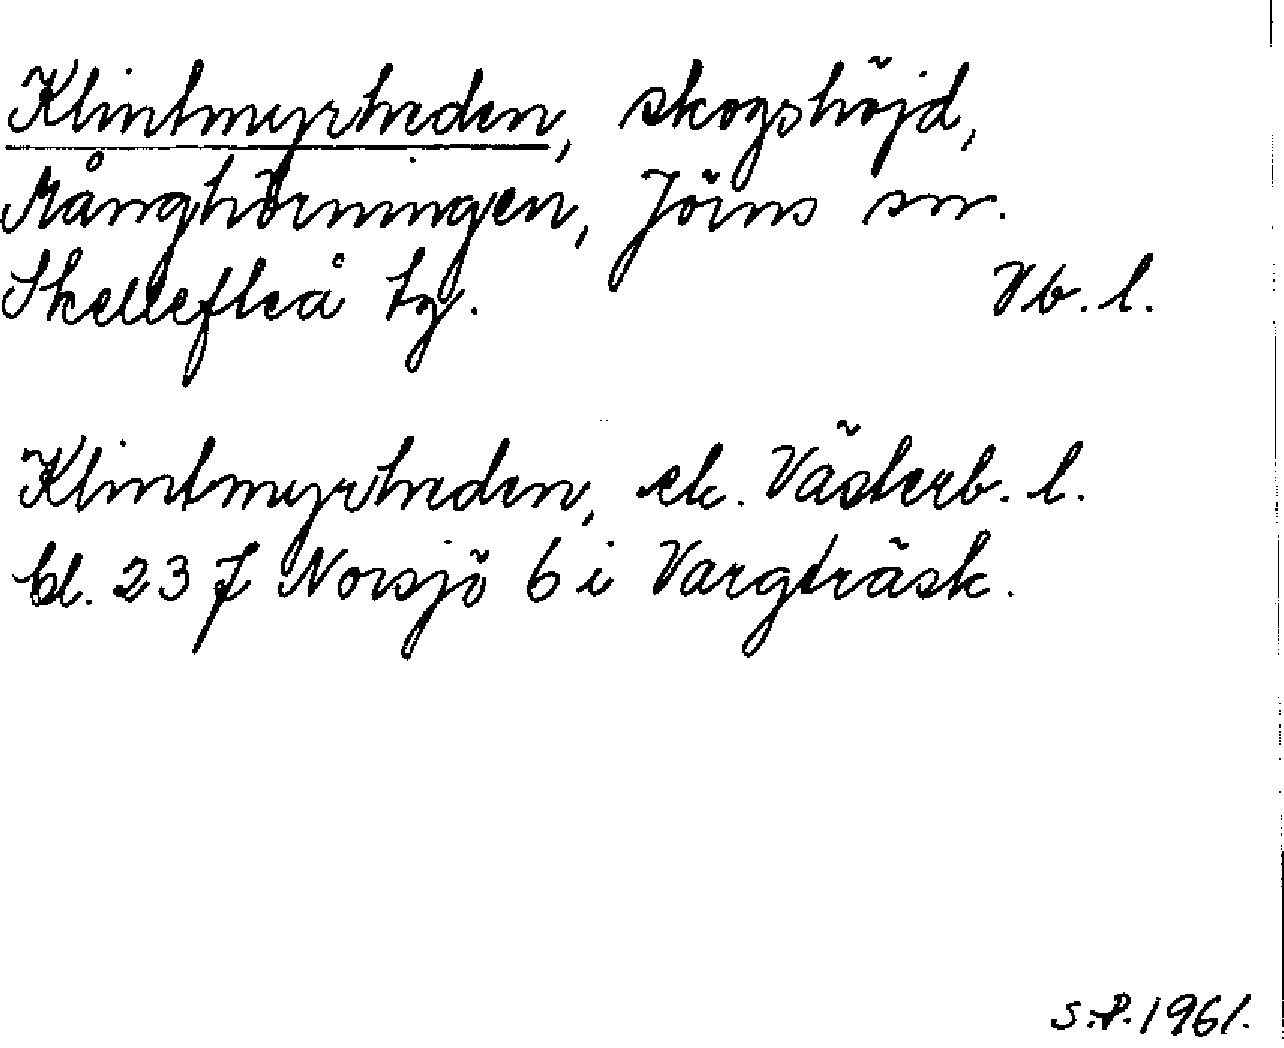 Klintmyrheden, skogshöjd,
Månghörningen, Jörns sn.
Skellefteå tg. Vb. l.
Klintmyrheden, ek. Västerb. l.
bl. 23 J Norsjö 6 i Vargträsk.
S.P. 1961.